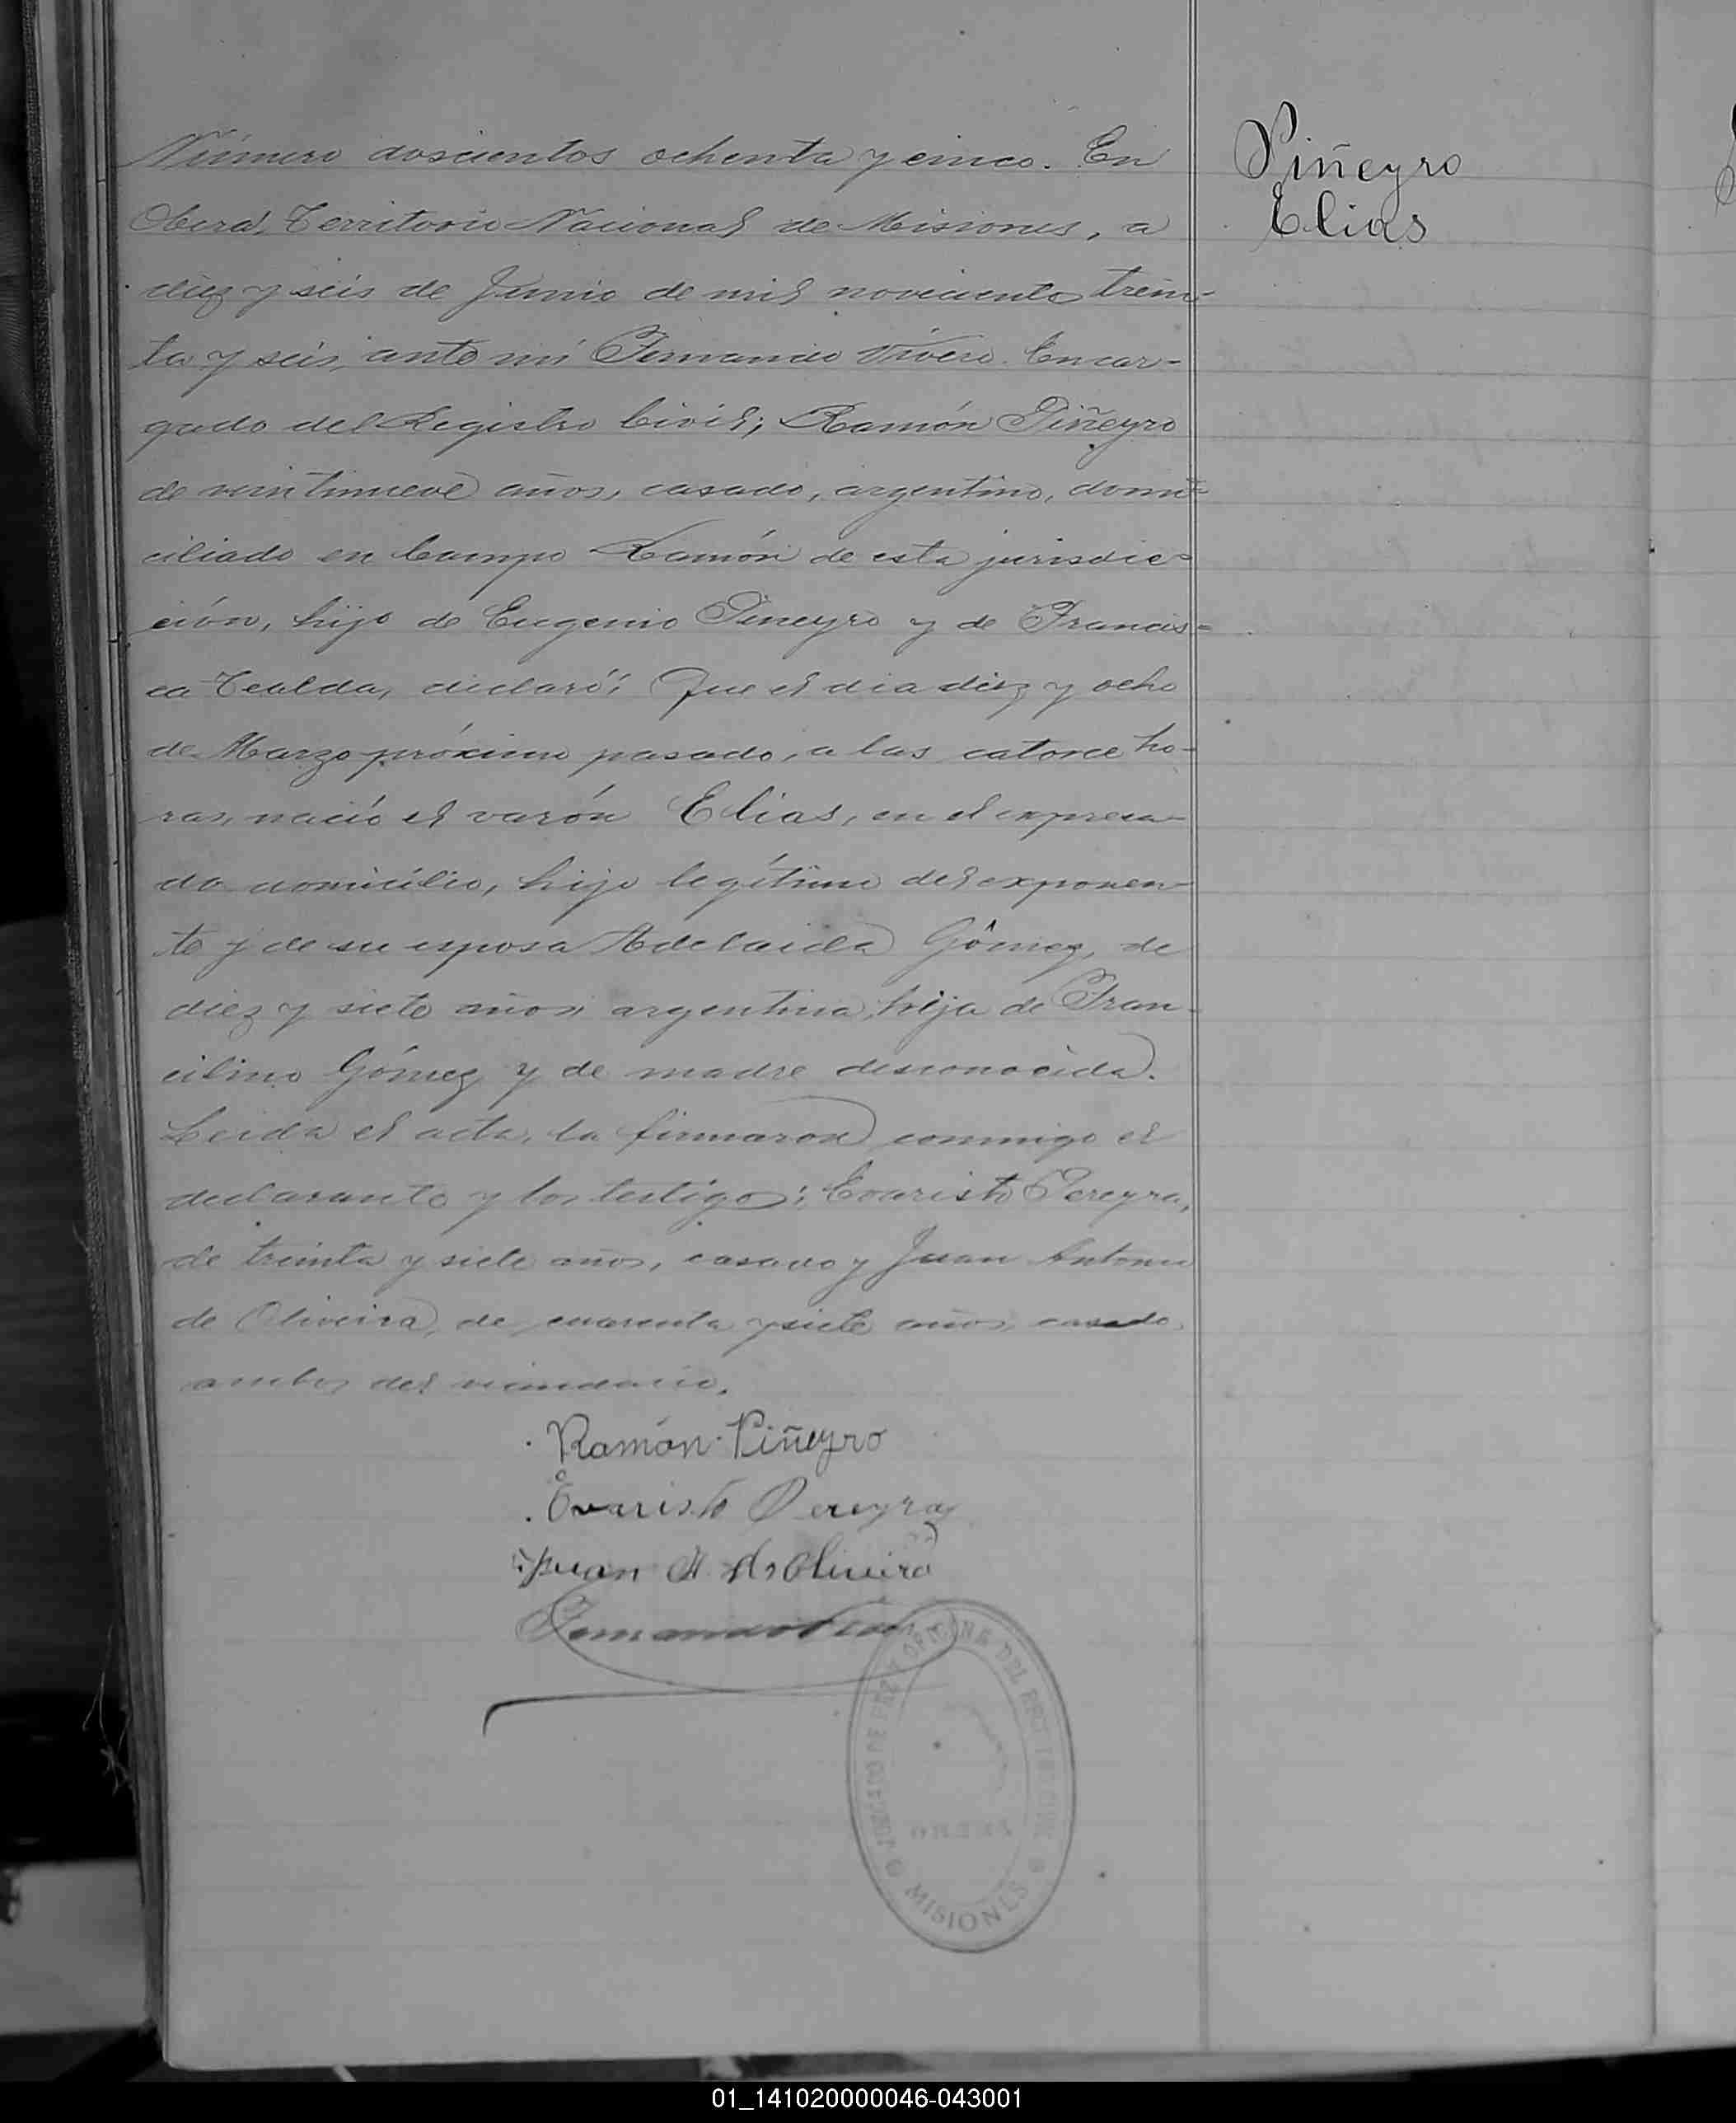 Número doscientos ochenta y cinco. En
Oberá, Territorio Nacional de Misiones, a
diez y seis de Junio de mil novecientos trein-
ta y seis, ante mi Fernando Vivero Encar-
gado del Registro Civil; Ramón Piñeyro
de veintinueve años, casado, argentino, domi-
ciliado en Campo Ramón de esta jurisdic-
ción, hijo de Eugenio Pineyro y de Francis-
ca Tealda, declaró: Que el dia diez y ocho
de Marzo próximo pasado, a las catorce ho-
ras, nació el varón Elias, en el expresa-
do domicilio, hijo legítimo del exponen-
te y de su esposa Adelaida Gómez, de
diez y siete años, argentina, hija de Fran-
cilino Gómez y de madre desconocida.
Leida el acta, la firmaron conmigo el
declarante y los testigos: Evaristo Pereyra,
de treinta y siete años, casado y Juan Antonio
de Oliveira, de cuarenta y siete años, casado,
ambos del vecindario.
Ramón Piñeyro
Evaristo Pereyra
Juan A. de Oliveira
Fernando
Piñeyro
Elias
JUZGADO DE PAZ Y OFICINA DEL REGISTRO CIVIL
MISIONES
01_141020000046-043001